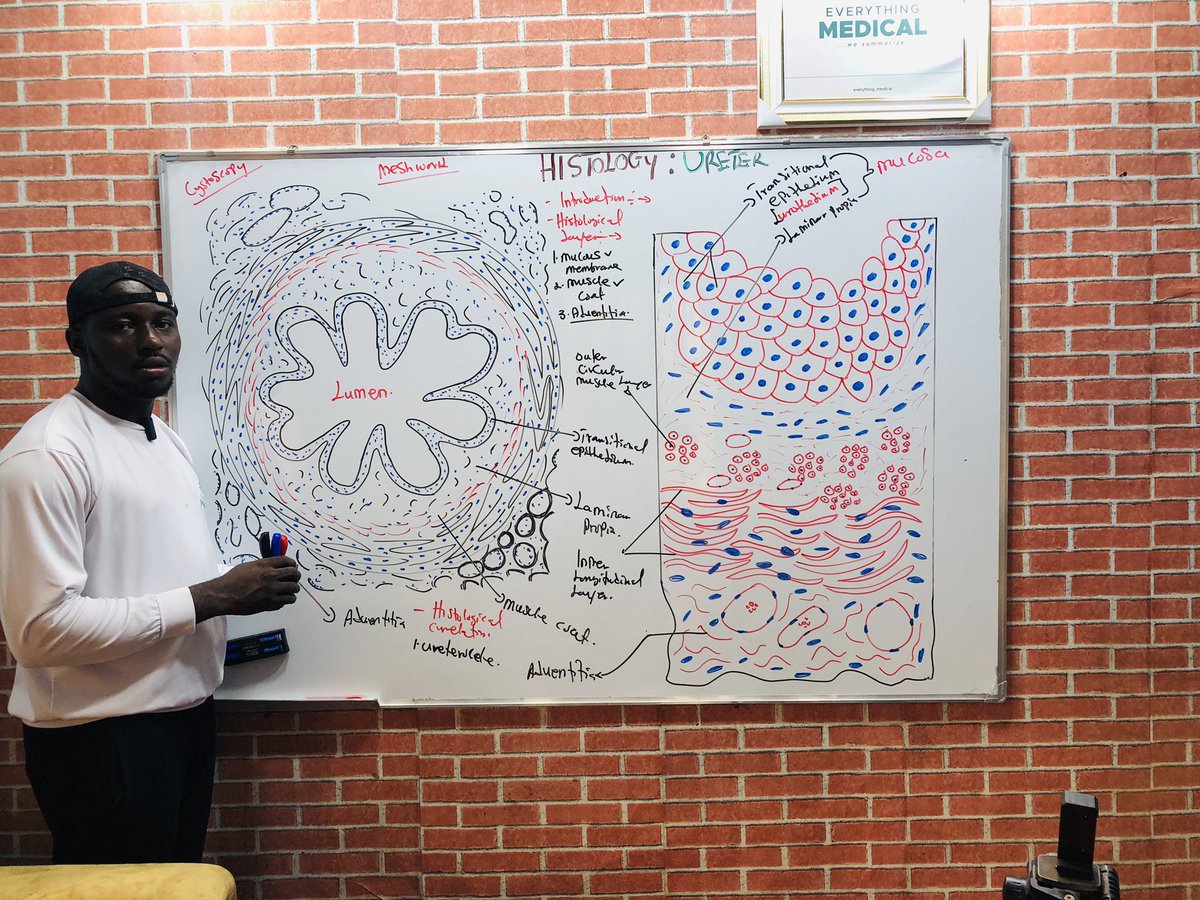 EVERYTHING
MEDICAL
...we summarize
everything_medical
Cystoscopy
Meshwork
HISTOLOGY: URETER
- Introduction:- →
- Histological
Layer →
1. Mucous ✓
membrane
2. Muscle ✓
Coat
3. Adventitia.
Transitional
epithelium
[urothelium]
Mucosa
Laminar Propia
Outer
Circular
Muscle Layer
Lumen.
Transitional
epithelium.
Laminar
Propia.
Inner
Longitudinal
Layer.
Muscle coat.
Adventitia
- Histological
Correlation.
1. Ureterocele.
Adventitia